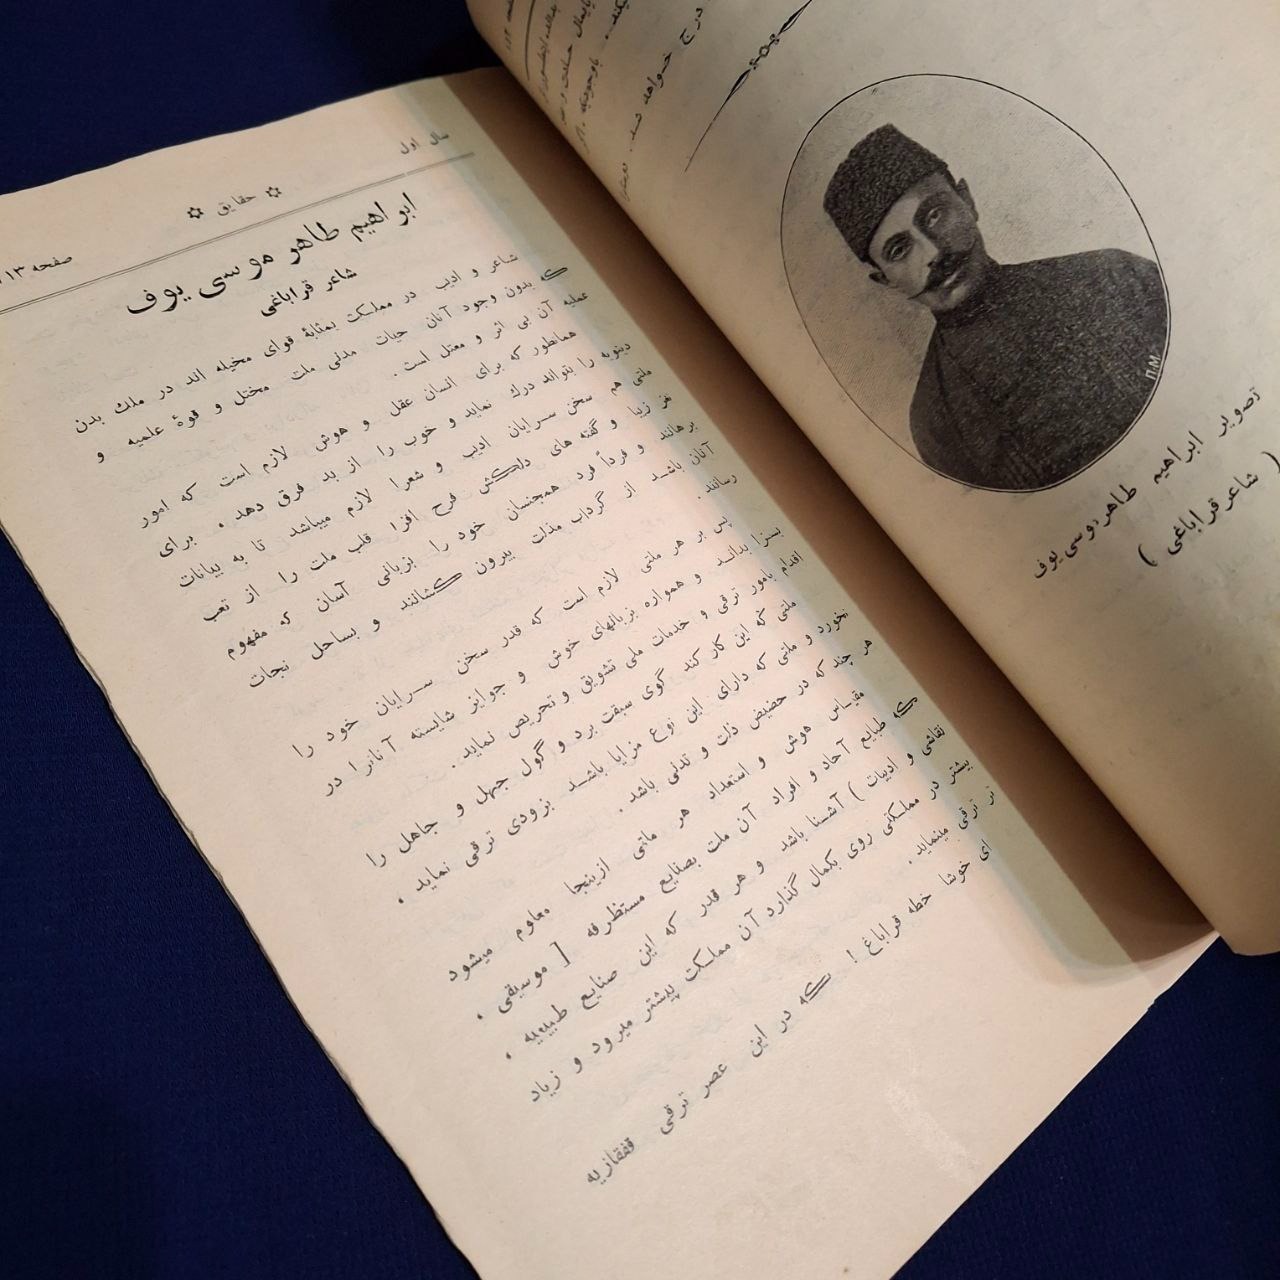 درج خواهد شد.
تصویر ابراهیم طاهر موسی یوف
( شاعر قراباغی )
П.М.
سال اول
حقایق
صفحه ۱۳
ابراهیم طاهر موسی یوف
شاعر قراباغی
شاعر و ادیب در مملکت بمثابهٔ قوای مخیله اند در ملك بدن
که بدون وجود آنان حیات مدنی ملت مختل و قوهٔ علمیه و
عملیه آن بی اثر و معتل است .
همانطور که برای انسان عقل و هوش لازم است که امور
دینویه را بتواند درك نماید و خوب را از بد فرق دهد ، برای
ملتی هم سخن سرایان ادیب و شعرا لازم میباشد تا به بیانات
نغز زیبا و گفته های دلکش فرح افزا قلب ملت را از تعب
برهانند و فرداً فرد همجنسان خود را بزبانی آسان که مفهوم
آنان باشد از گرداب مذلت بیرون کشانند و بساحل نجات
رسانند .
پس بر هر ملتی لازم است که قدر سخن سرایان خود را
بسزا بداند و همواره بزبانهای خوش و جوایز شایسته آنانرا در
اقدام بامور ترقی و خدمات ملی تشویق و تحریص نماید .
ملتی که این کار کند گوی سبقت برد و گول جهل و جاهل را
نخورد و ملتی که دارای این نوع مزایا باشد بزودی ترقی نماید ،
هر چند که در حضیض ذلت و تدنی باشد .
مقیاس هوش و استعداد هر ملتی ازینجا معلوم میشود
که طبایع آحاد و افراد آن ملت بصنایع مستظرفه [ موسیقی ،
نقاشی و ادبیات ) آشنا باشد و هر قدر که این صنایع طبیعیه ،
بیشتر در مملکتی روی بکمال گذارد آن مملکت پیشتر میرود و زیاد
تر ترقی مینماید .
ای خوشا خطه قراباغ ! که در این عصر ترقی قفقازیه